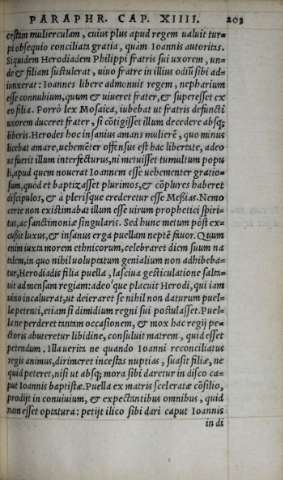 PARAPHR. CAP. XIIII. 203
cestam mulierculam, cuius plus apud regem ualuit tur=
pi obsequio conciliata gratia, quam Ioannis autoritas.
Siquidem Herodiadem Philippi fratris sui uxorem, un=
de & filiam sustulerat, uiuo fratre in illius odiū sibi ad=
iunxerat: Ioannes libere admonuit regem, nepharium
esse connubium, quum & uiueret frater, & superesset ex
eo filia. Porrò lex Mosaica, iubebat ut fratris defuncti
uxorem duceret frater, si cōtigisset illum decedere absq;
liberis. Herodes hoc insanius amans mulierē, quo minus
licebat amare, uehemēter offensus est hac libertate, adeo
ut fuerit illum interfecturus, ni metuisset tumultum popu
li, apud quem nouerat Ioannem esse uehementer gratio=
sum, quòd et baptizasset plurimos, & cōplures haberet
discipulos, & a plerisque crederetur esse Meßias. Nemo
certe non existimabat illum esse uirum prophetici spiri=
tus, ac sanctimoniæ singularis. Sed hunc metum pòst ex=
cußit luxus, & insanus erga puellam neptē fauor. Quum
enim iuxta morem ethnicorum, celebraret diem suum na
talem, in quo nihil uoluptatum genialium non adhibeba=
tur, Herodiadis filia puella, lasciua gesticulatione salta=
uit ad mensam regiam: adeo'que placuit Herodi, qui iam
uino incaluerat, ut deieraret se nihil non daturum puel=
læ petenti, etiam si dimidium regni sui postulasset. Puel=
la ne perderet tantam occasionem, & mox hac regij pe=
ctoris abuteretur libidine, consuluit matrem, quid esset
petendum. Illa uerita ne quando Ioanni reconciliatus
regis animus, dirimeret incestas nuptias, suasit filiæ, ne
quid peteret, nisi ut absq; mora sibi daretur in disco ca=
put Ioannis baptistæ. Puella ex matris sceleratæ cōsilio,
prodijt in conuiuium, & expectantibus omnibus, quid
non esset optatura: petijt ilico sibi dari caput Ioannis
in di